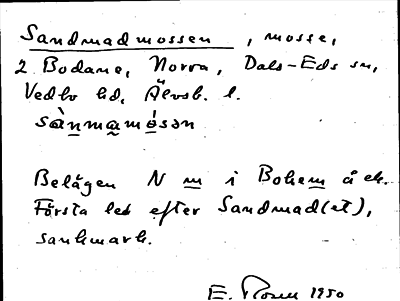 Sandmadmossen, mosse,
2 Bodane, Norra, Dals-Eds sn,
Vedbo hd, Älvsb. l.
sànmamósən
Belägen N m i Bohem å ek.
Första led efter Sandmad(et),
sankmark.
E. 1950